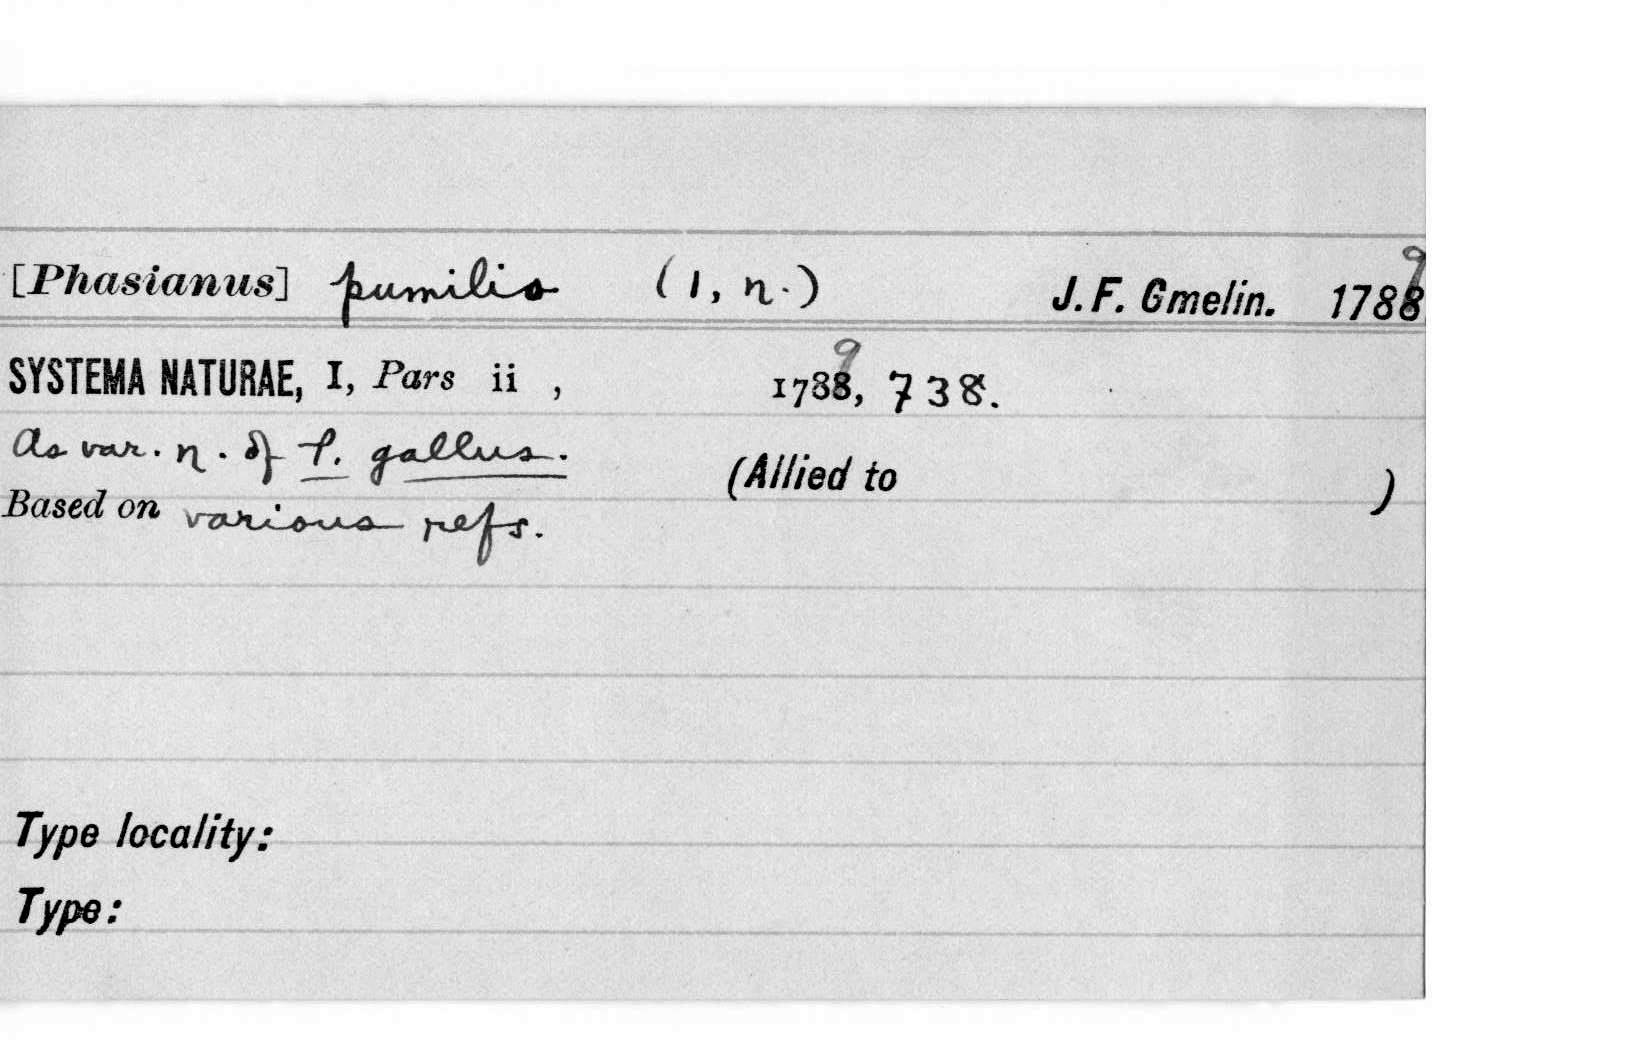 [Phasianus] pumilio (1, n.) J. F. Gmelin. 1788 9
SYSTEMA NATURAE, I, Pars ii , 1788, 9 738.
As var. n. of P. gallus.
(Allied to )
Based on various refs.
Type locality:
Type: